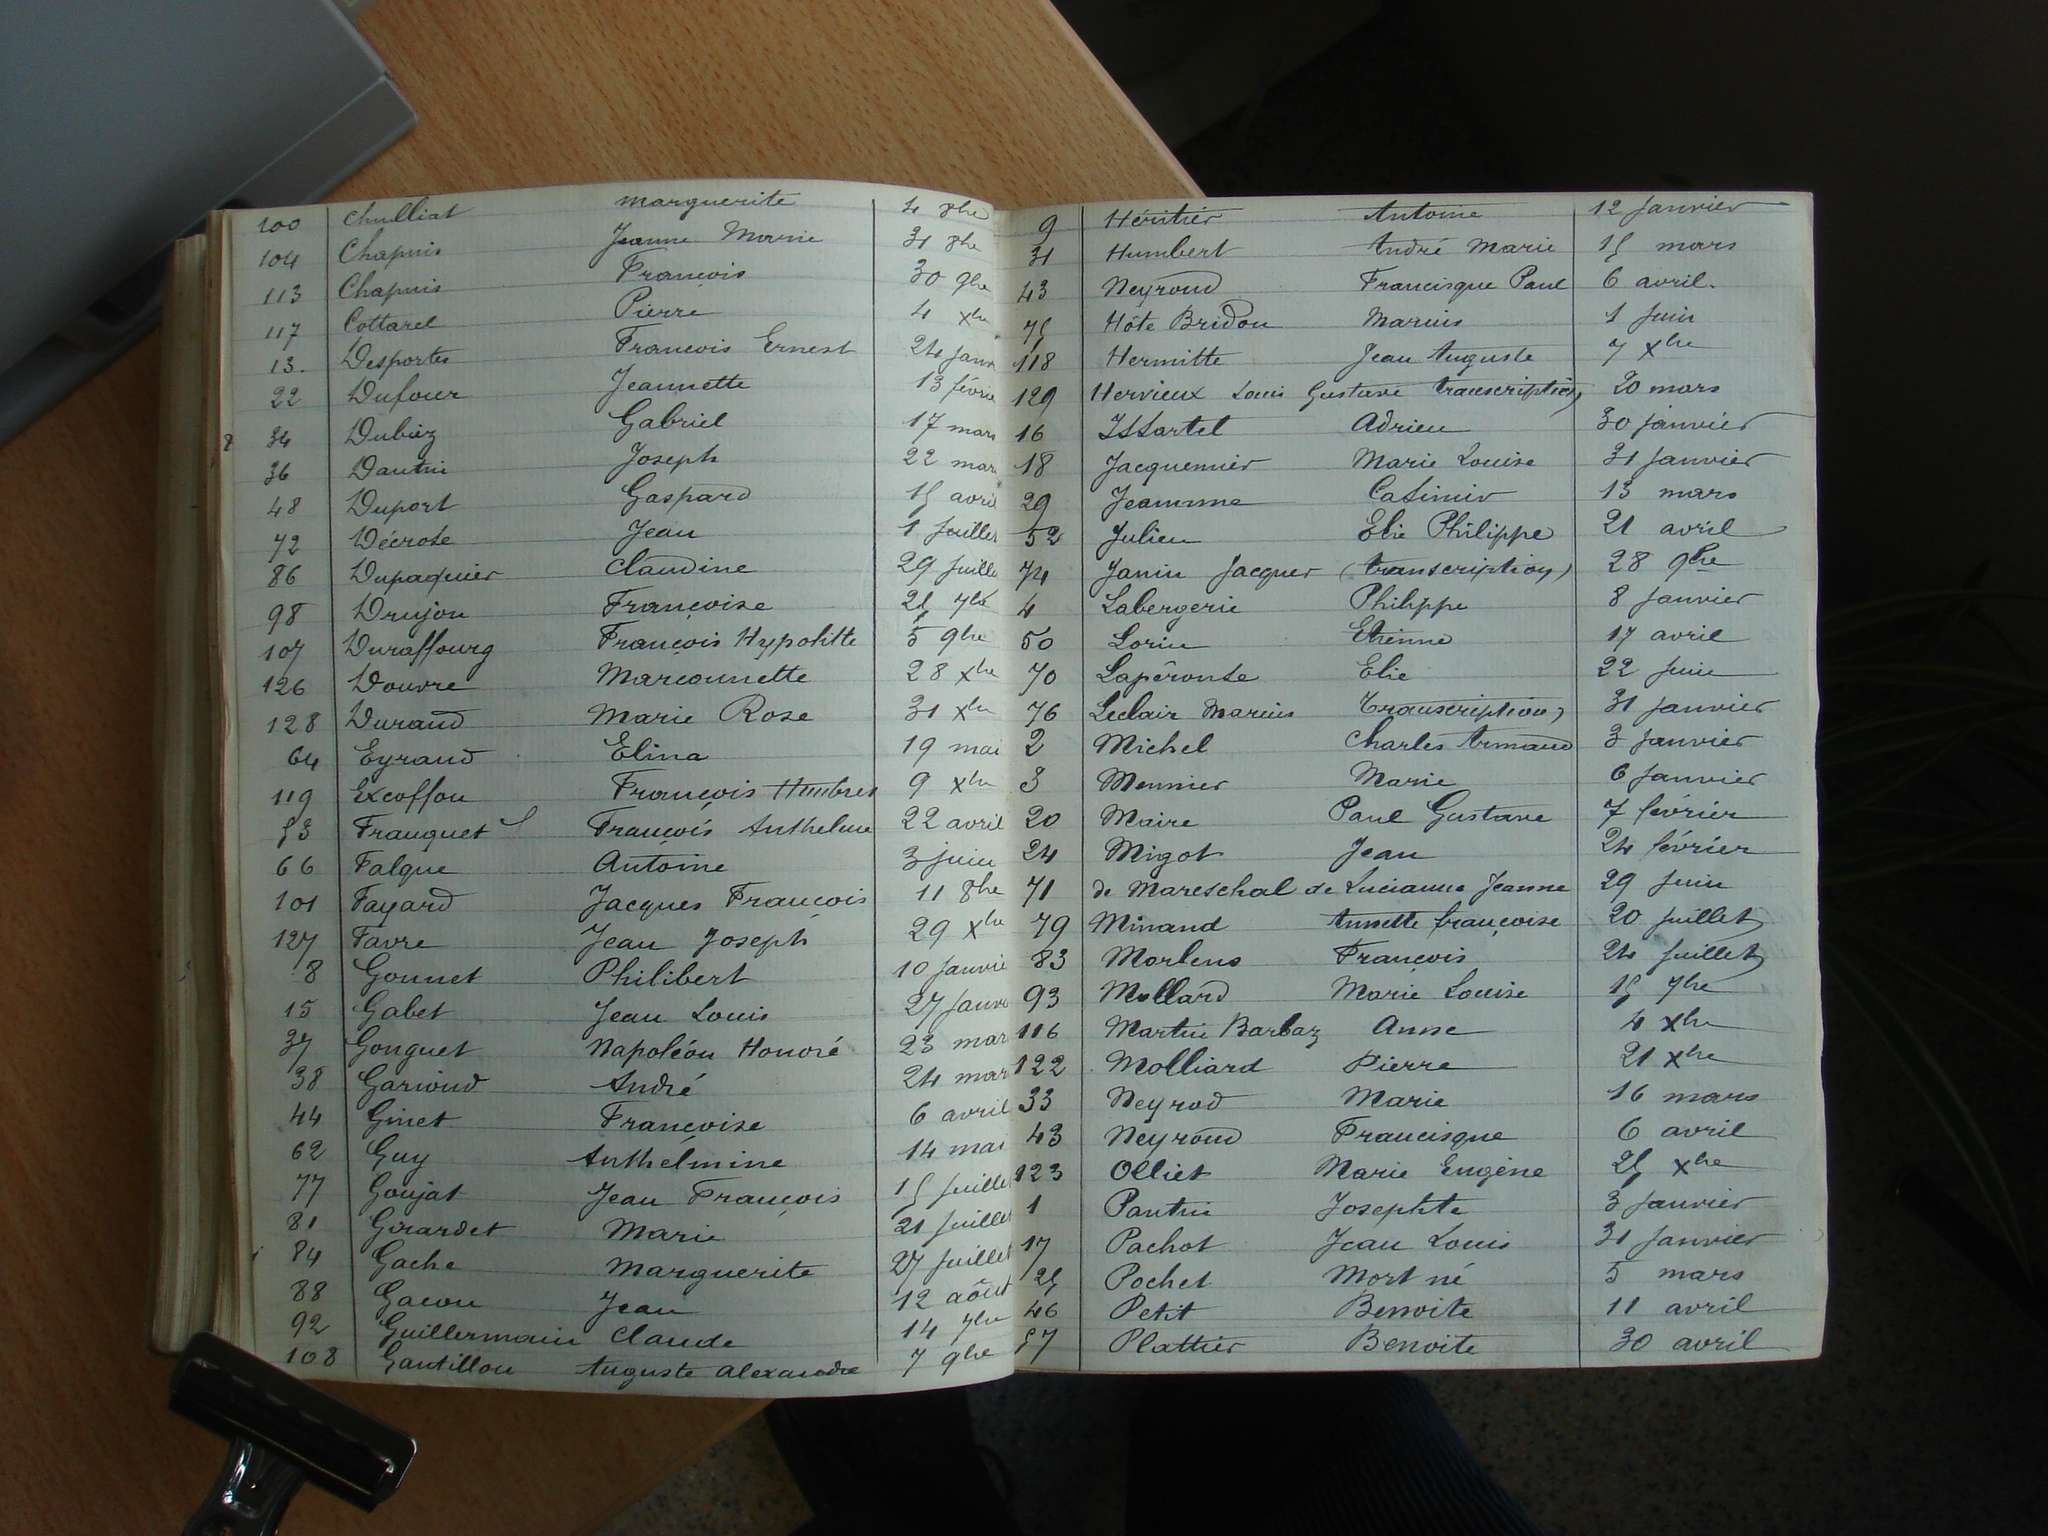 100 Chulliat marguerite 4 8bre
104 Chapuis Jeanne Marie 31 8bre
113 Chapuis François 30 9bre
117 Cottarel Pierre 4 Xbre
13. Desportes François Ernest 24 janv
22 Dufour Jeannette 13 févrie
34 Dubiez Gabriel 17 mars
36 Dantin Joseph 22 mar
48 Duport Gaspard 15 avril
72 Décrose Jean 1 juillet
86 Dupaquier Claudine 29 juille
98 Drujon Françoise 25 7bre
107 Duraffourg François Hypolitte 5 9bre
126 Douvre Marionnette 28 Xbre
128 Durand Marie Rose 31 Xbre
64 Eyraud Elina 19 mai
119 Excoffon François Humbert 9 Xbre
53 Franquet François Anthelme 22 avril
66 Falque Antoine 3 juin
101 Fayard Jacques François 11 8bre
127 Favre Jean Joseph 29 Xbre
8 Gonnet Philibert 10 Janvie
15 Gabet Jean Louis 27 Janv
37 Gonguet Napoléon Honoré 23 mar
38 Garioud André 24 mar
44 Ginet Françoise 6 avril
62 Guy Anthelmine 14 mai
77 Goujat Jean François 15 juillet
81 Girardet Marie 21 juillet
84 Gache Marguerite 27 juillet
88 Gacon Jean 12 août
92 Guillermain Claude 14 7bre
108 Gantillon Auguste Alexandre 7 9bre
9 Héritier Antoine 12 Janvier
31 Humbert André Marie 15 mars
43 Neyroud Francisque Paul 6 avril.
75 Hôte Bridon Marius 1 Juin
118 Hermitte Jean Auguste 7 Xbre
129 Hervieux Louis Gustave transcription, 20 mars
16 Issartel Adrien 30 janvier
18 Jacquemier Marie Louise 31 Janvier
29 Jeamme Casimir 13 mars
52 Julien Elie Philippe 21 avril
74 Janin Jacques (transcription) 28 9bre
4 Labergerie Philippe 8 janvier
50 Lorin Etienne 17 avril
70 Lapérouse Elie 22 Juin
76 Leclair Marius Transcription, 31 janvier
2 Michel Charles Armand 3 Janvier
3 Meunier Marie 6 Janvier
20 Maire Paul Gustave 7 février
24 Migot Jean 24 février
71 de Mareschal de Lucianne Jeanne 29 Juin
79 Minand Annette françoise 20 Juillet
83 Morlens François 24 Juillet
93 Mollard Marie Louise 15 7bre
116 Martin Barbaz Anne 4 Xbre
122 Molliard Pierre 21 Xbre
33 Neyrod Marie 16 mars
43 Neyroud Francisque 6 avril
123 Olliet Marie Eugène 25 Xbre
1 Pantin Josephte 3 Janvier
17 Pachot Jean Louis 31 Janvier
25 Pochet Mort né 5 mars
46 Petit Benoite 11 avril
57 Plattier Benoite 30 avril